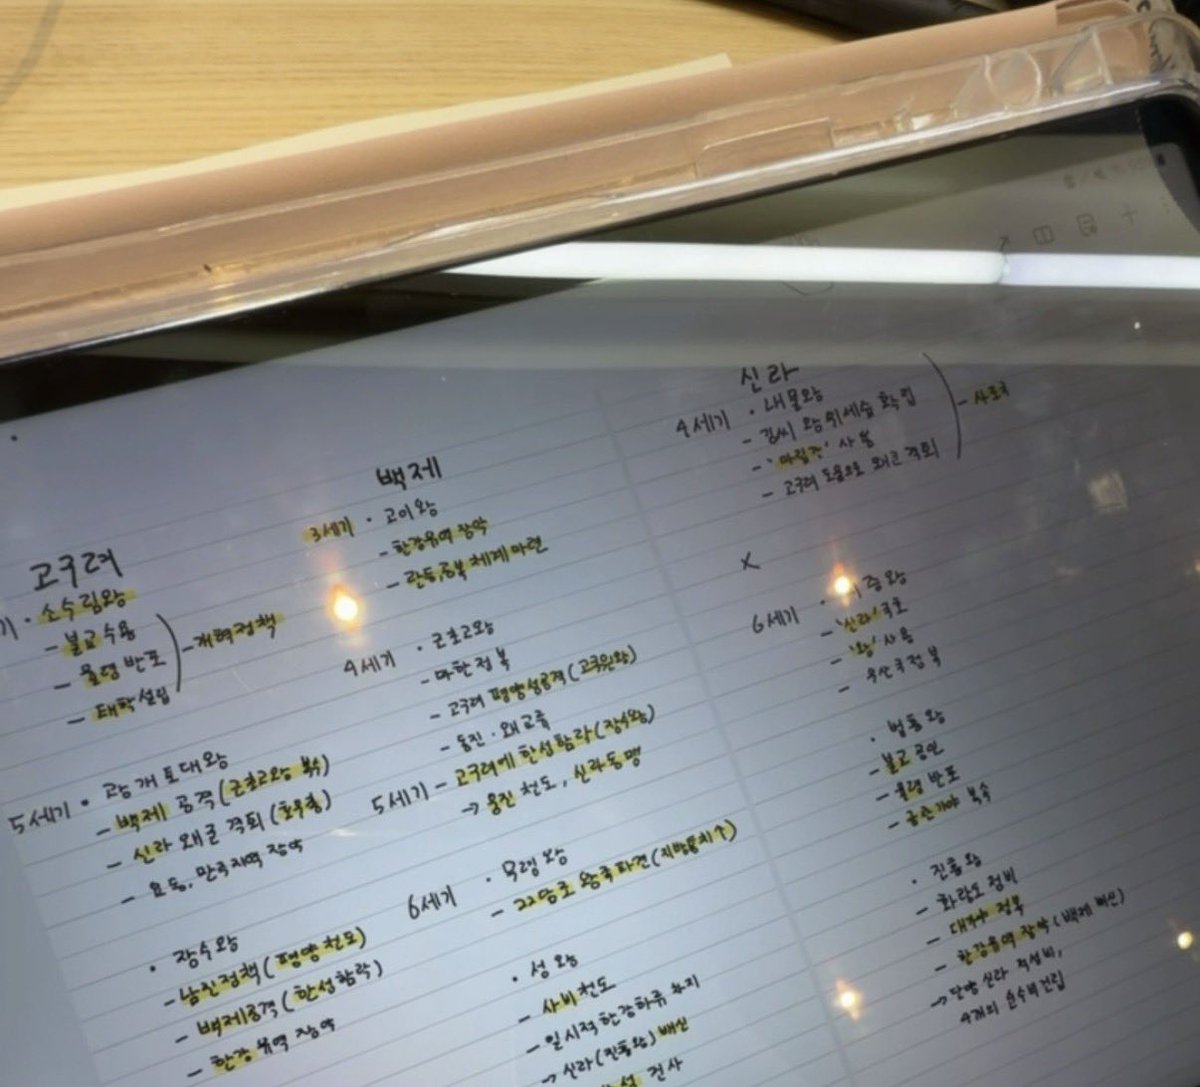 고구려
소수림왕
- 불교 수용
- 율령 반포
- 태학 설립
5세기 • 광개토대왕
- 백제 공격 (근초고왕 복수)
- 신라 왜군 격퇴 (호우총)
- 요동, 만주지역 장악
• 장수왕
- 남진정책 (평양 천도)
- 백제공격 (한성함락)
- 한강 유역 장악
백제
3세기 • 고이왕
- 한강유역 장악
- 관등,공복 체계 마련
4세기 • 근초고왕
- 마한 정복
- 고구려 평양성공격 (고국원왕)
- 동진·왜 교류
5세기 - 고구려에 한성함락 (장수왕)
→ 웅진 천도, 신라동맹
6세기 • 무령왕
- 22담로 왕족파견 (지방통치↑)
• 성왕
- 사비천도
- 일시적 한강하류 차지
→ 신라(진흥왕) 배신
전사
신라
4세기 • 내물왕
- 김씨 왕위세습 확립
- '마립간' 사용
- 고구려 도움으로 왜군 격퇴
6세기 • 지증왕
- '신라' 국호
- '왕' 사용
- 우산국 정복
• 법흥왕
- 불교 공인
- 율령 반포
- 금관가야 복속
• 진흥왕
- 화랑도 정비
- 대가야 정복
- 한강유역 장악 (백제 배신)
→ 단양 신라 적성비,
4개의 순수비 건립